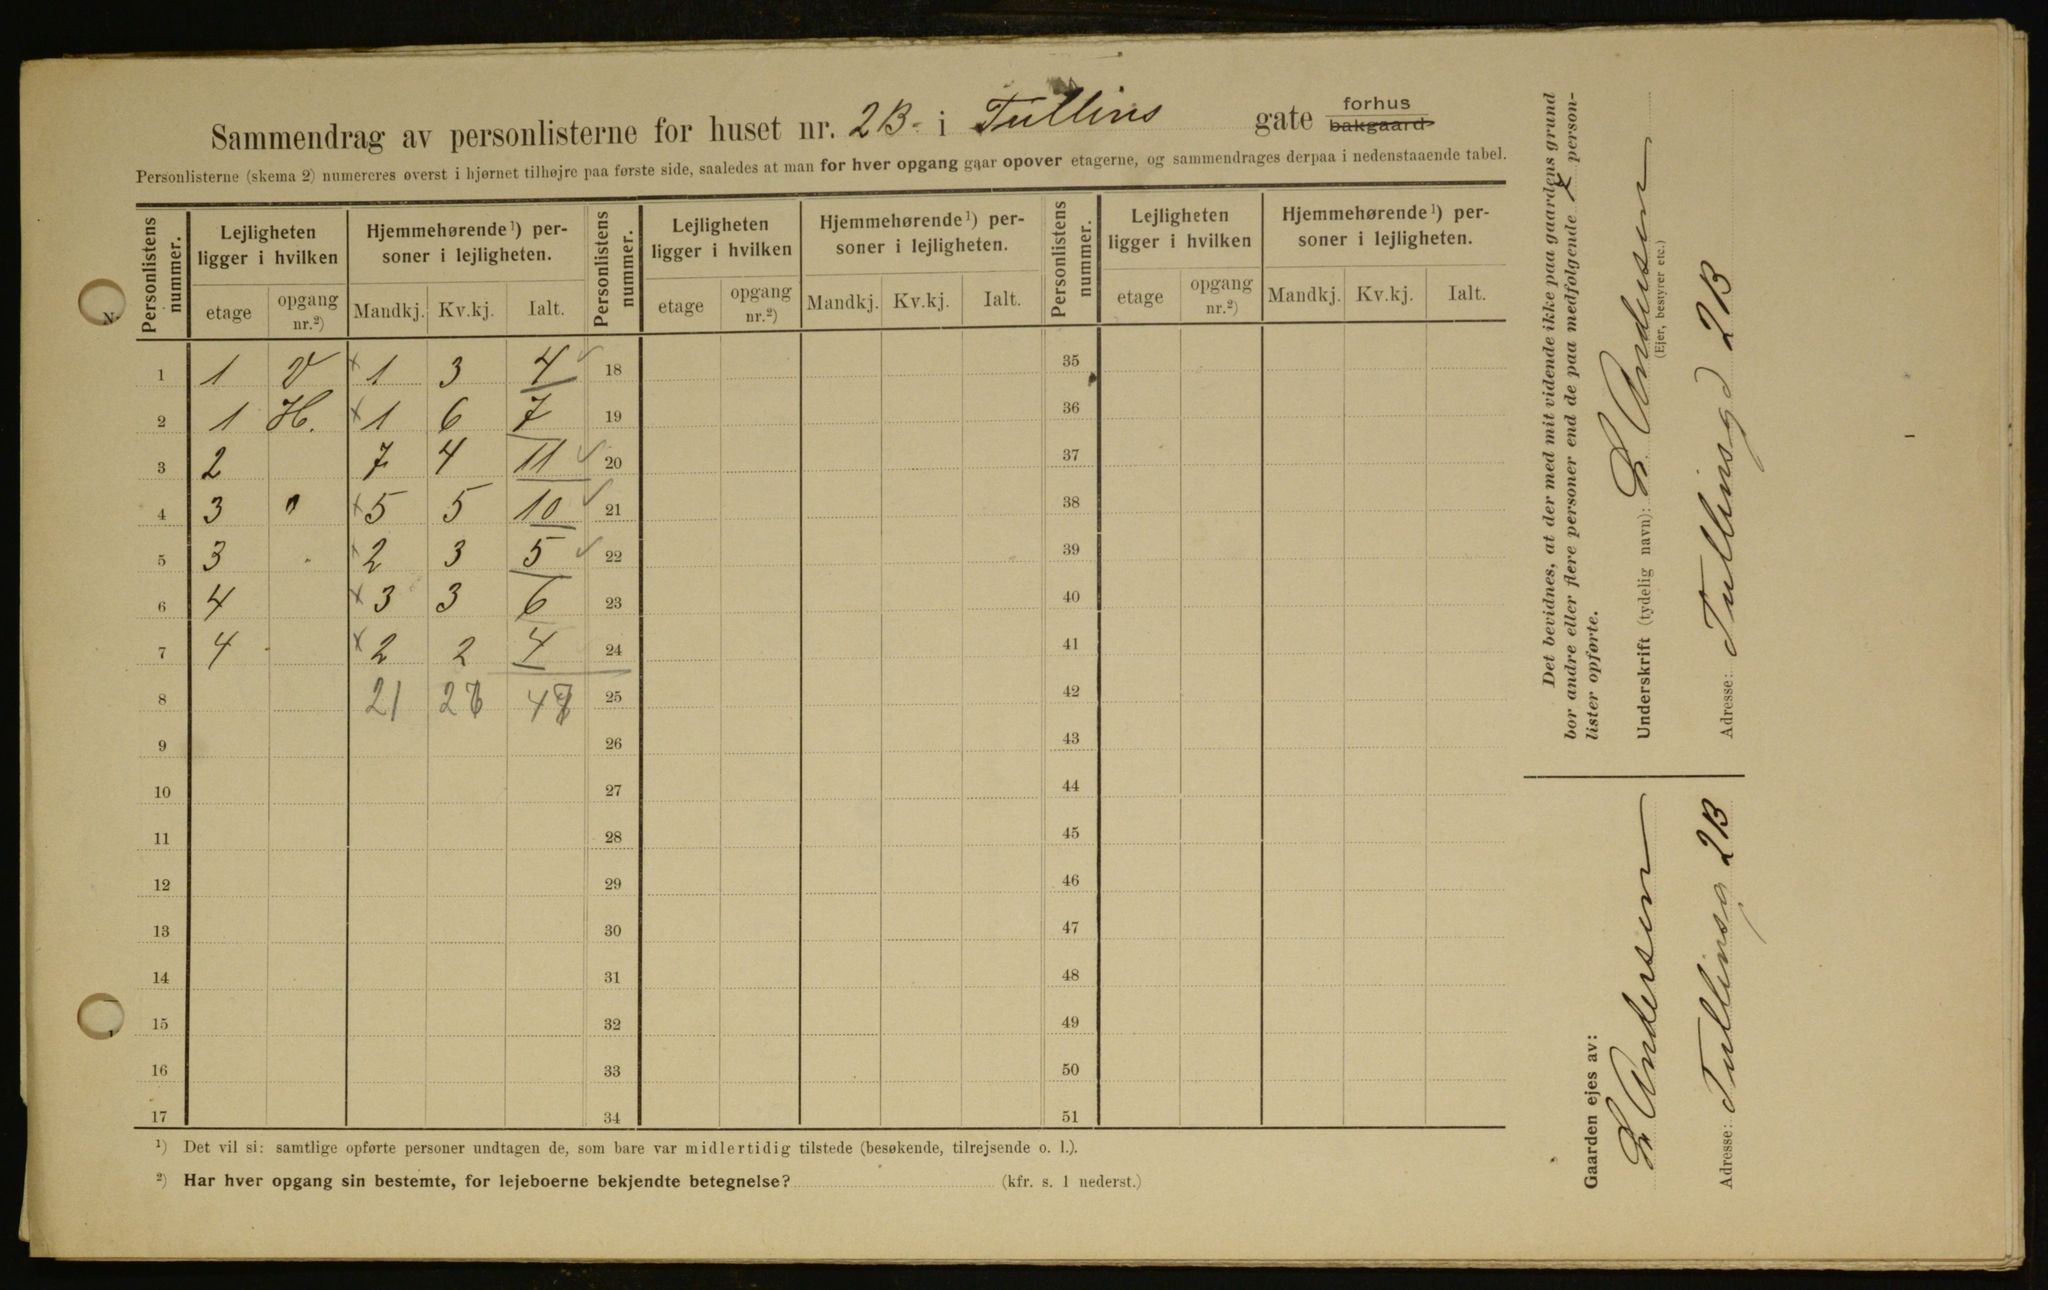 Sammendrag av personlisterne for huset nr. 2B. i Tullins gate forhus bakgaard
Personlisterne (skema 2) numereres øverst i hjørnet tilhøjre paa første side, saaledes at man for hver opgang gaar opover etagerne, og sammendrages derpaa i nedenstaaende tabel.
Personlistens nummer. Lejligheten ligger i hvilken Hjemmehørende¹) personer i lejligheten. Personlistens nummer. Lejligheten ligger i hvilken Hjemmehørende¹) personer i lejligheten. Personlistens nummer. Lejligheten ligger i hvilken Hjemmehørende¹) personer i lejligheten.
etage opgang nr.²) Mandkj. Kv.kj. Ialt. etage opgang nr.²) Mandkj. Kv.kj. Ialt. etage opgang nr.²) Mandkj. Kv.kj. Ialt.
1 1 V × 1 3 4 ✓ 18 35
2 1 H. × 1 6 7 19 36
3 2 7 4 11 ✓ 20 37
4 3 " × 5 5 10 ✓ 21 38
5 3 " × 2 3 5 ✓ 22 39
6 4 × 3 3 6 23 40
7 4 × 2 2 4 24 41
8 21 2 4 25 42
9 26 43
10 27 44
11 28 45
12 29 46
13 30 47
14 31 48
15 32 49
16 33 50
17 34 51
¹) Det vil si: samtlige opførte personer undtagen de, som bare var midlertidig tilstede (besøkende, tilrejsende o. l.).
²) Har hver opgang sin bestemte, for lejeboerne bekjendte betegnelse? (kfr. s. 1 nederst.)
Det bevidnes, at der med mit vidende ikke paa gaardens grund
bor andre eller flere personer end de paa medfølgende 7 person-
lister opførte.
Underskrift (tydelig navn): Andersen
(Ejer, bestyrer etc.)
Adresse: Tullinsgd 2B
Gaarden ejes av:
Andersen
Adresse: Tullinsg 2B